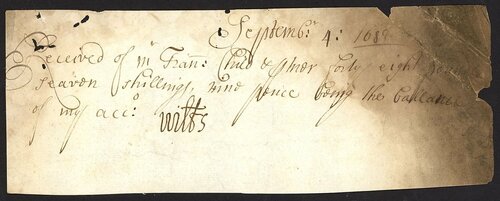 Septembr 4: 1689
Received of mr Fran: Child & ... forty eight pounds
seaven shillings, nine pence being the ballance
of my acco:
Wilts